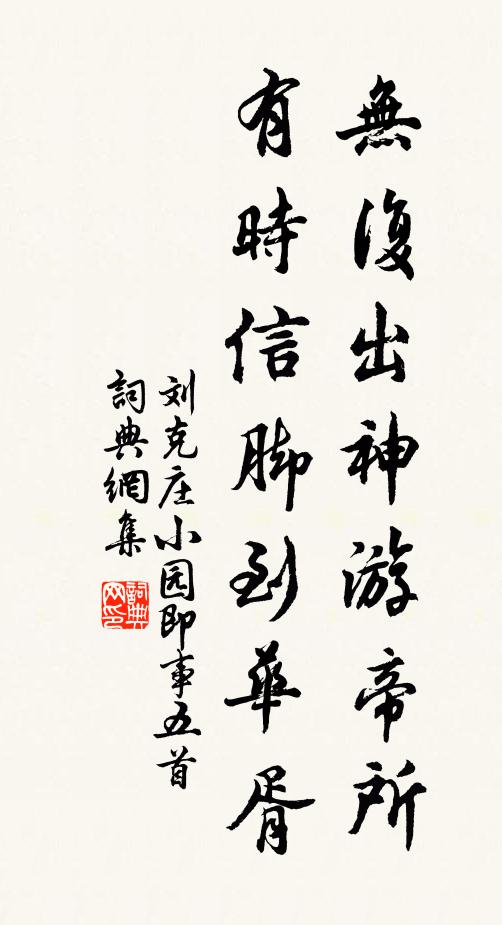 無復出神游帝所
有時信脚到華胥
刘克庄小园即事五首
詞典網集
詞典
网印